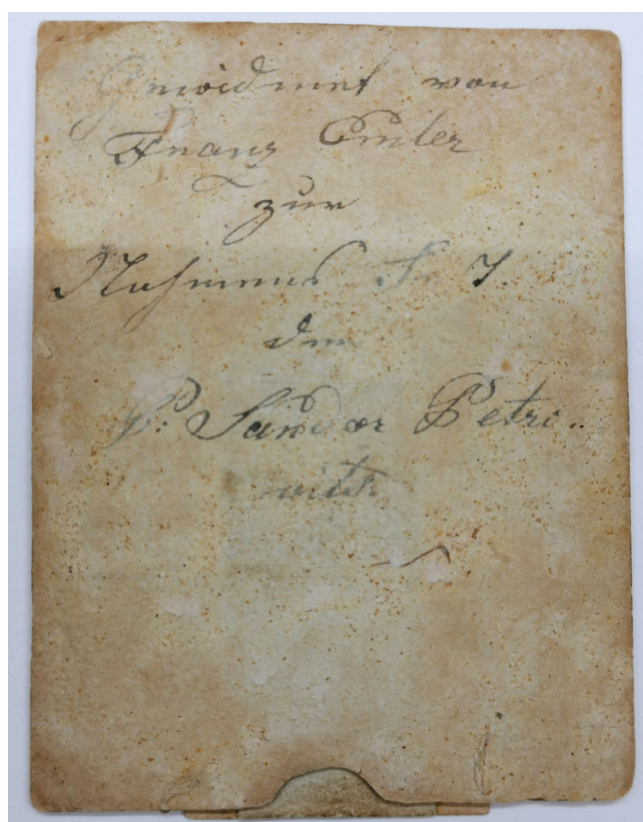 Gewidmet von
Franz Emler
zur
Nahmens
den
P: Sandor Petro..
vits